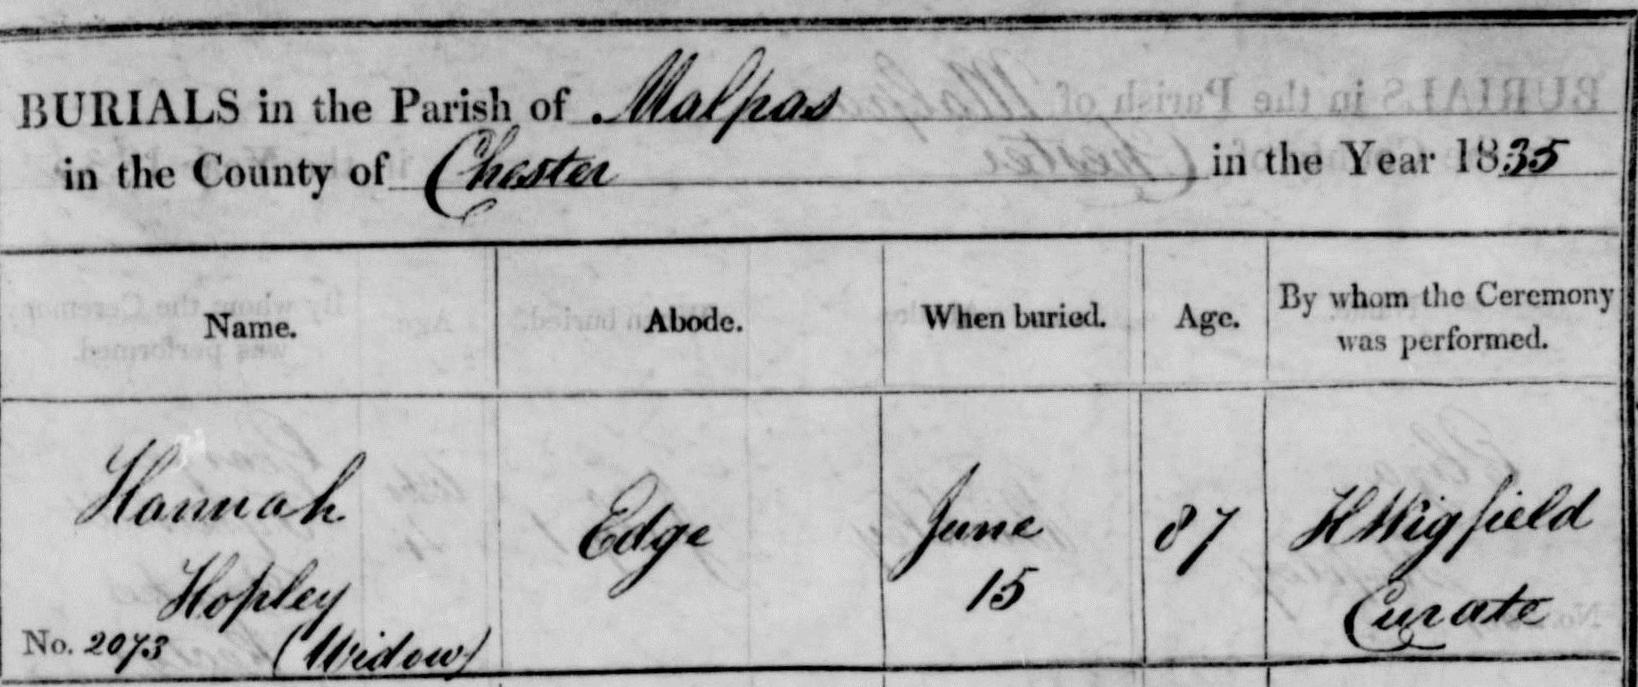 BURIALS in the Parish of Malpas
in the County of Chester in the Year 1835
Name. Abode. When buried. Age. By whom the Ceremony
was performed.
Hannah Edge June 87 H Wigfield
Hopley 15 Curate
No. 2073 (Widow)